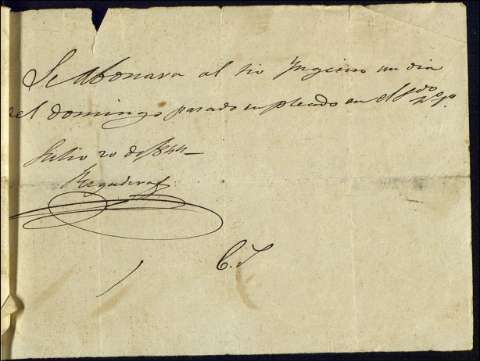 Se Abonara al tio Ygino un dia
el domingo pasado enpleado en el
Julio 20 de 1844
C. S